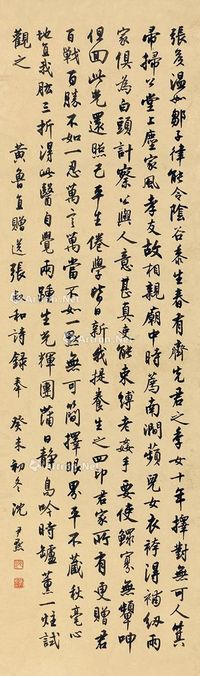 張侯溫如鄒子律能令陰谷黍生春有齊先君之季女十年擇對無可人箕
帚掃公堂上塵家風孝友故相親廟中時薦南澗蘋兒女衣袴得補紉兩
家俱為白頭計察公與人意甚真吏能束縛老姦手要使鰥寡無顰呻
但回此光還照己平生倦學皆日新我提養生之四印君家所有更贈君
百戰百勝不如一忍萬言萬當不如一默無可簡擇眼界平不藏秋毫心
地直我肱三折得此醫自覺兩踵生光輝團蒲日靜鳥吟時爐薰一炷試
觀之 黃魯直贈送張叔和詩錄奉 癸未初冬 沈尹默